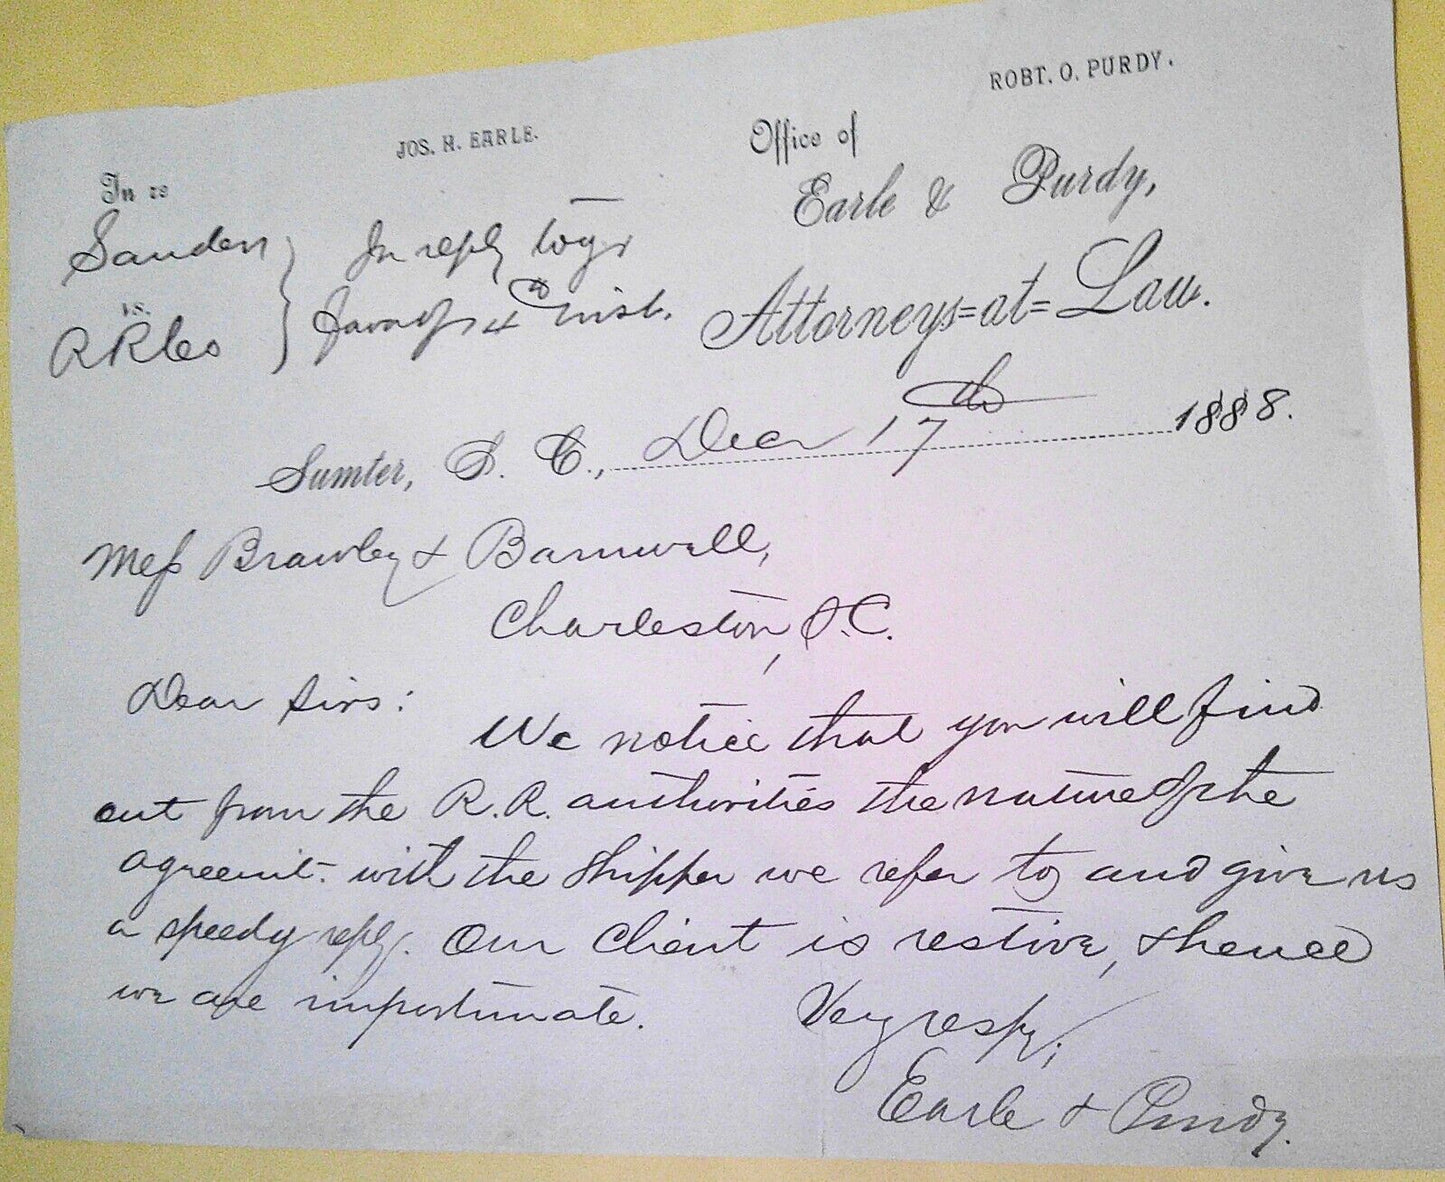 JOS. H. EARLE.
ROBT. O. PURDY.
Office of
Earle & Purdy,
Attorneys=at=Law.
In re
Sanders
vs.
RR Co
In reply to yr
favor of inst.
Sumter, S. C., Dec 17th 1888.
Mess Brawley & Barnwell,
Charleston, S.C.
Dear Sirs:
We notice that you will find
out from the R.R. authorities the nature of the
agreemt. with the shipper we refer to and give us
a speedy reply. Our client is restive, & hence
we are importunate.
Very respy;
Earle & Purdy.